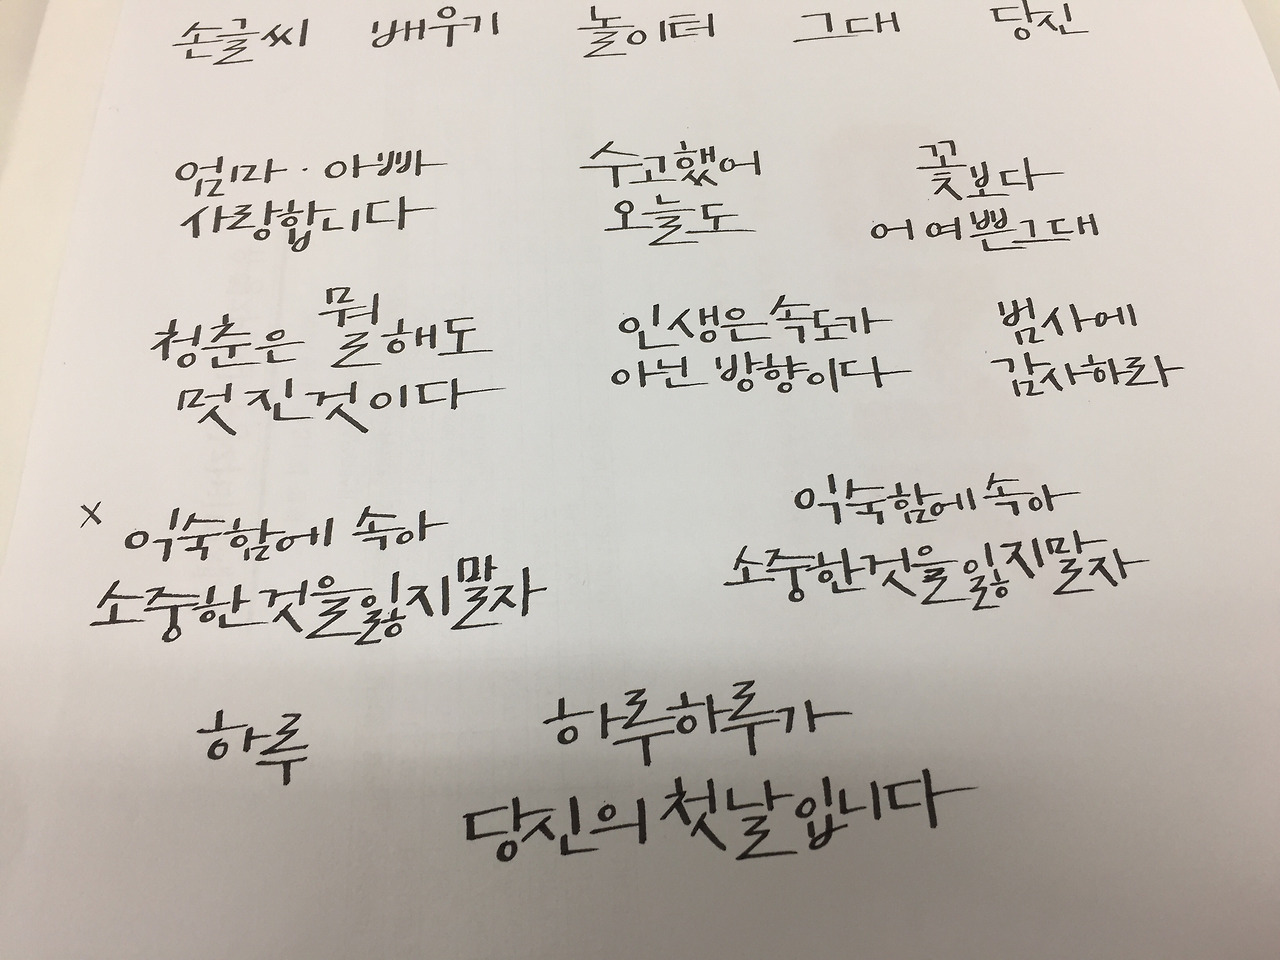 손글씨 배우기 놀이터 그대 당신
엄마 · 아빠
사랑합니다
수고했어
오늘도
꽃보다
어여쁜그대
청춘은 뭘해도
멋진것이다
인생은속도가
아닌 방향이다
범사에
감사하라
x 익숙함에 속아
소중한것을잃지말자
익숙함에속아
소중한것을잃지말자
하루
하루하루가
당신의첫날입니다